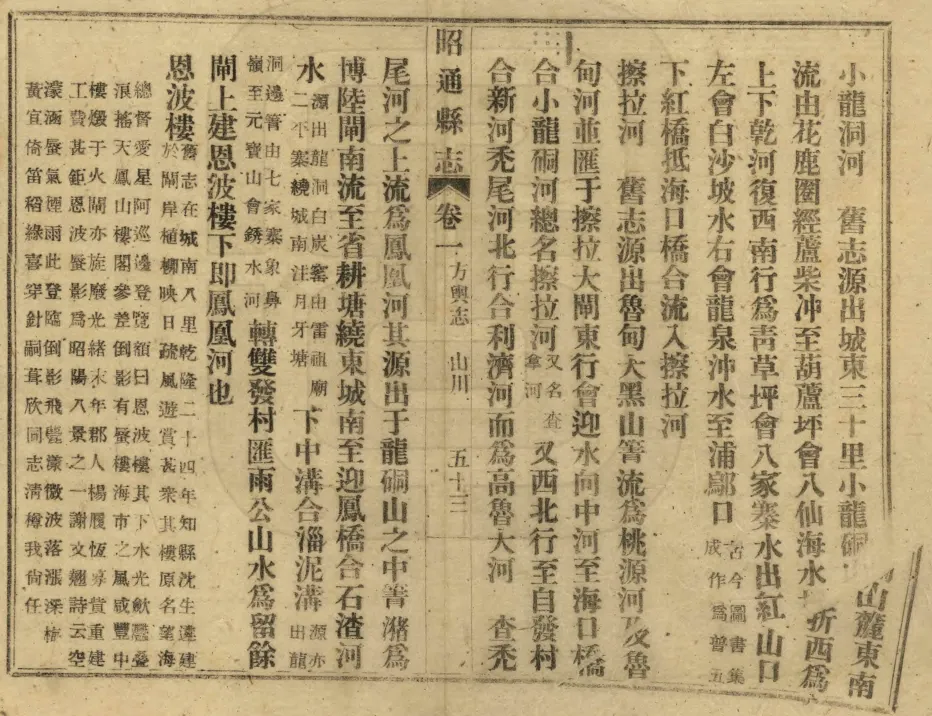 小龍洞河　舊志源出城東三十里小龍硐山麓東南
流由花鹿圈經蘆柴冲至葫蘆坪會八仙海水折西爲
上下乾河復西南行爲靑草坪會八家寨水出紅山口
左會白沙坡水右會龍泉沖水至浦鄢口古今圖書集成作爲普五
下紅橋抵海口橋合流入擦拉河
擦拉河　舊志源出魯甸大黑山箐流爲桃源河及魯
甸河並匯于擦拉大閘東行會迎水向中河至海口橋
合小龍硐河總名擦拉河又名查拿河又西北行至自發村
合新河禿尾河北行合利濟河而爲高魯大河　查禿
昭通縣志　卷一　方輿志　山川　五十三
尾河之上流爲鳳凰河其源出于龍硐山之中箐瀦爲
博陸閘南流至省耕塘繞東城南至迎鳳橋合石渣河
水源出龍洞白炭窰由雷祖廟二平寨繞城南注月牙塘下中溝合淄泥溝源亦出龍
洞邊箐由七家寨象鼻嶺至元寶山會銹水河轉雙發村匯雨公山水爲留餘
閘上建恩波樓下即鳳凰河也
恩波樓舊志在城南八里乾隆二十四年知縣沈生遴建
於閘岸植柳映日疏風遊賞甚衆其樓原名望海
總督愛星阿巡邊登覽額曰恩波樓其下水光歛灧叠
浪搖天鳳山樓閣參差倒影有蜃樓海市之風咸豐中
樓燬于火閘亦旋廢光緒末年郡人楊履恆募貲重建
工費甚鉅恩波蜃影爲昭陽八景之一謝文翹詩云空
濛海蜃氣煙雨此登臨倒影飛甍漾微波落漲深
黃宜倚笛稻綠喜穿針嗣葺欣同志淸樽我尙任